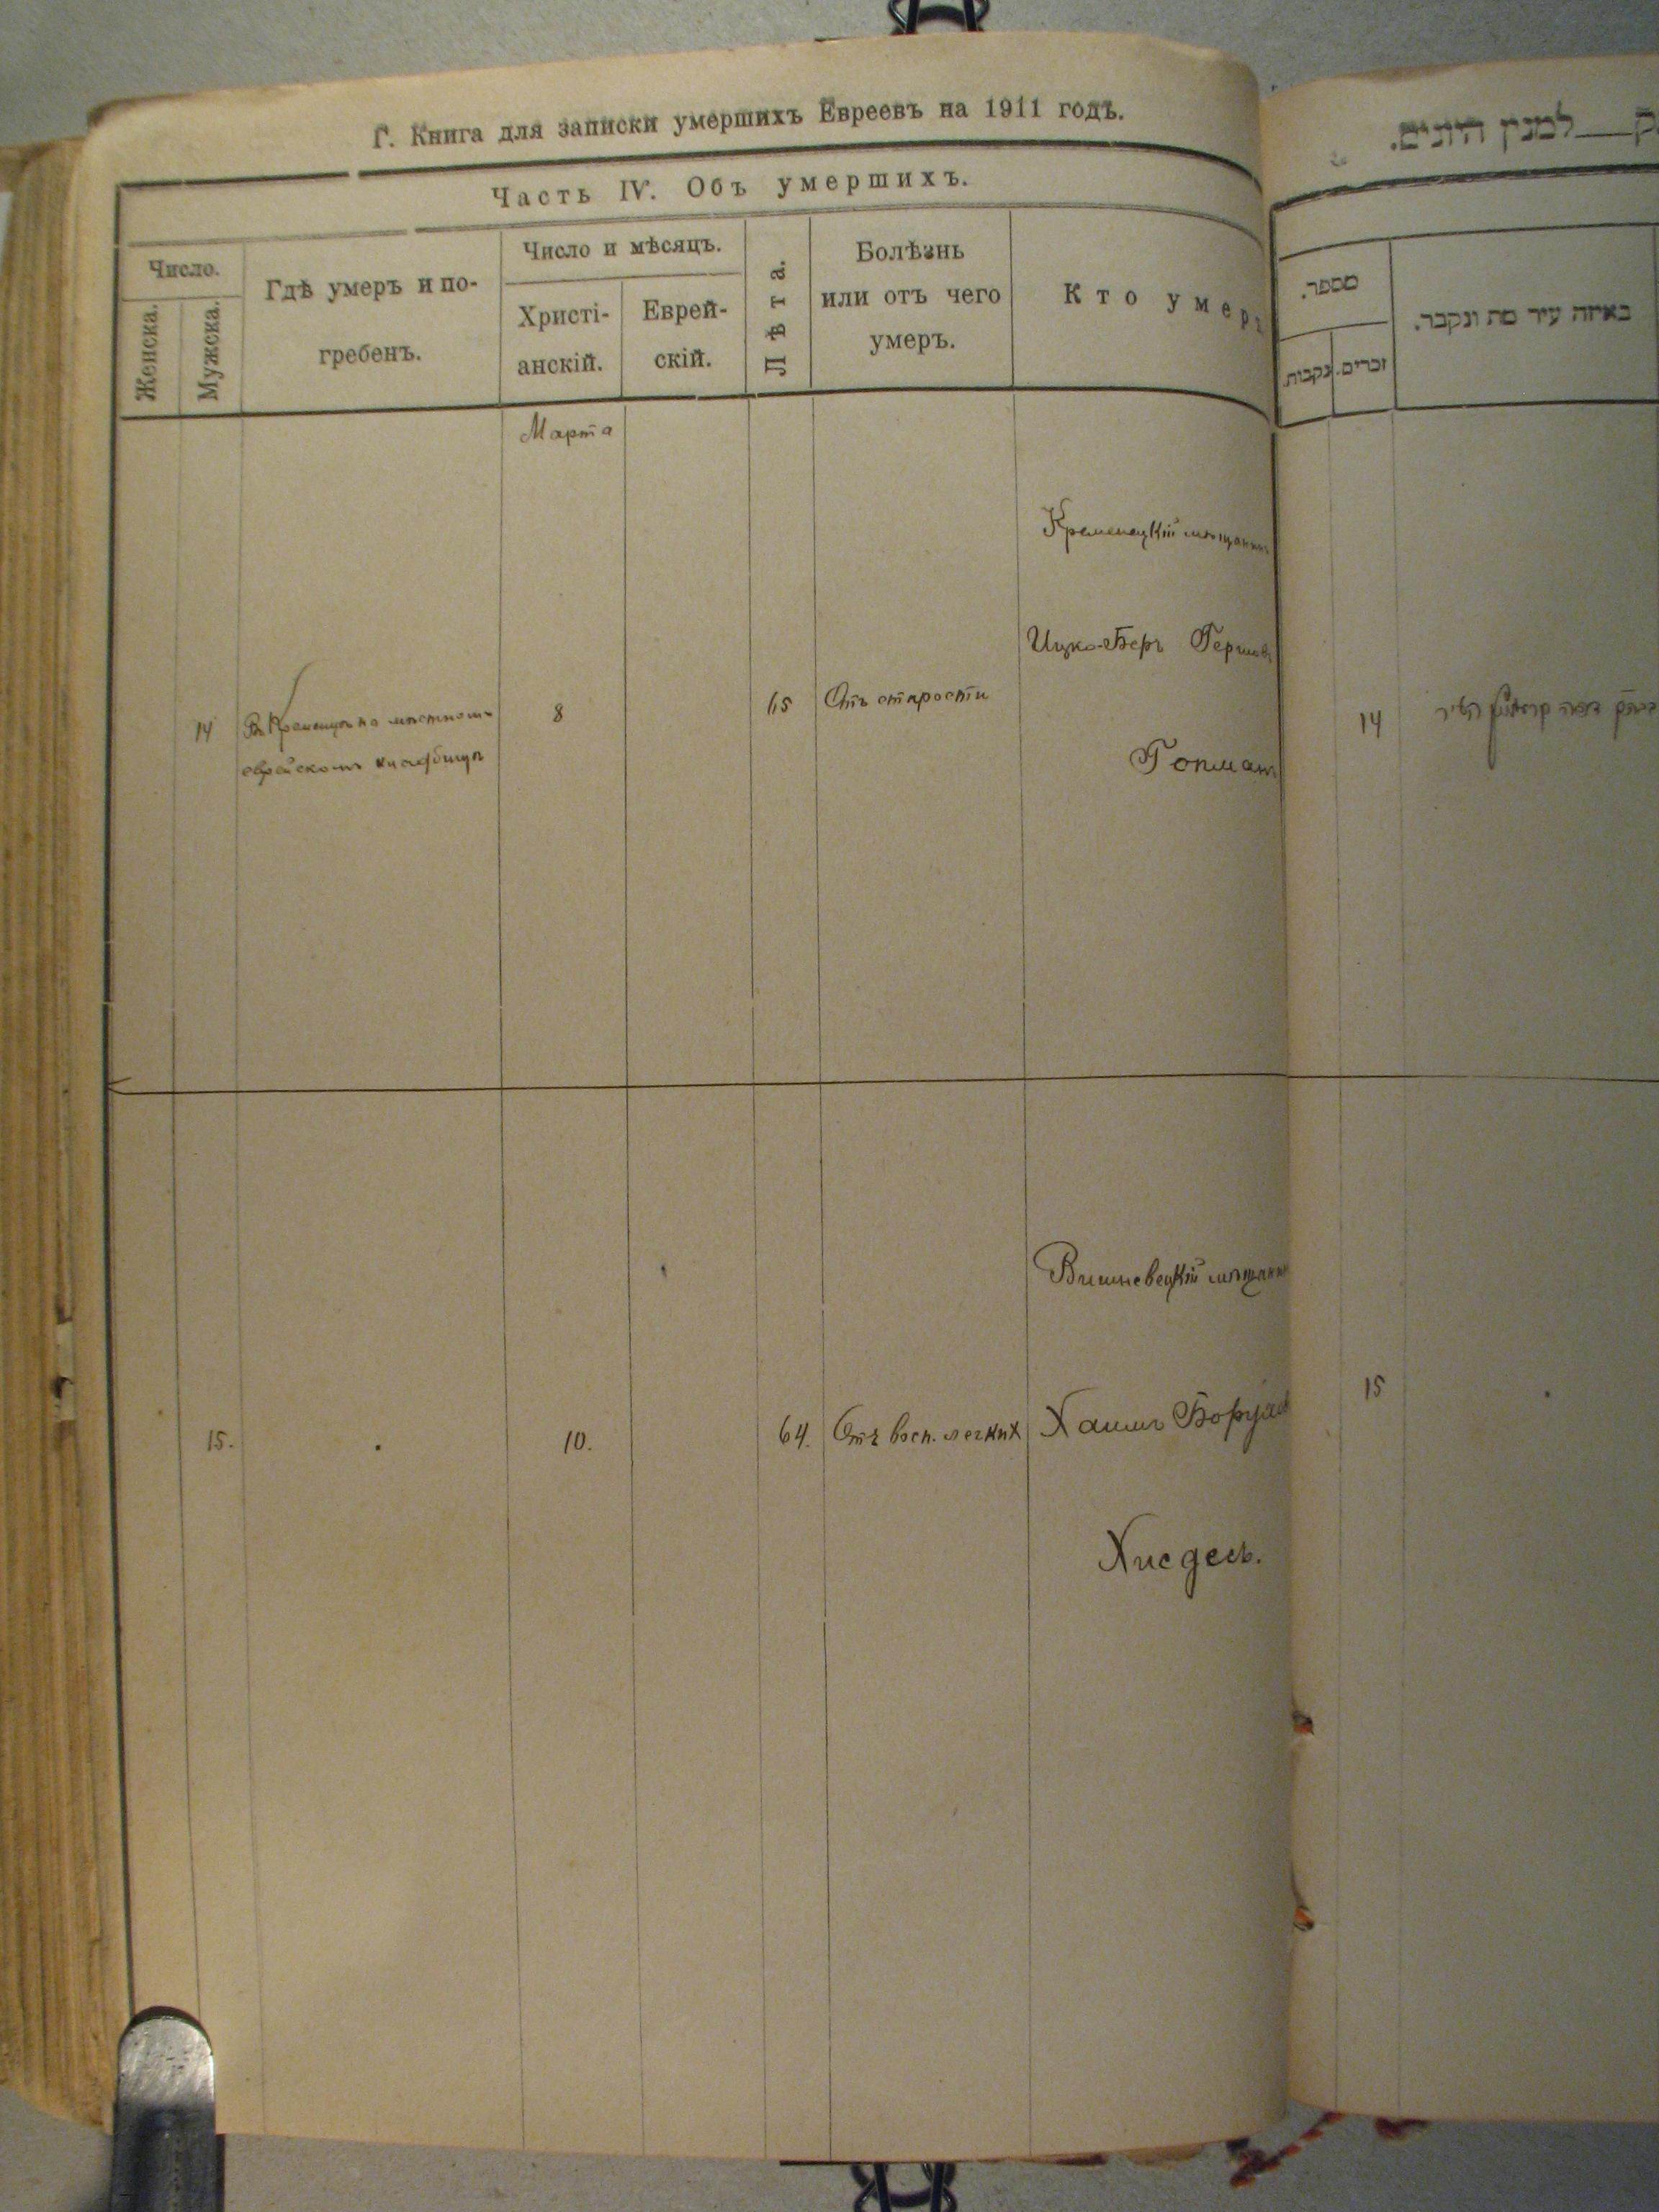 Г. Книга для записки умершихъ Евреевъ на 1911 годъ.
Часть IV. Объ умершихъ.
Число.
Женска.
Мужска.
Гдѣ умеръ и по-
гребенъ.
Число и мѣсяцъ.
Христі-
анскій.
Еврей-
скій.
Лѣта.
Болѣзнь
или отъ чего
умеръ.
Кто умеръ
Марта
Кременецкій мѣщанинъ
Ицко-Беръ Гершовъ
14
Въ Кременцѣ на мѣстномъ
еврейскомъ кладбищѣ
8
65
Отъ старости
Гопманъ
Вишневецкій мѣщанин
15.
10.
64.
Отъ восп. легкихъ
Хаимъ Борух
Хисдесъ.
למנין היונים.
מספר.
זכרים.
נקבות.
באיזה עיר מת ונקבר.
14
15